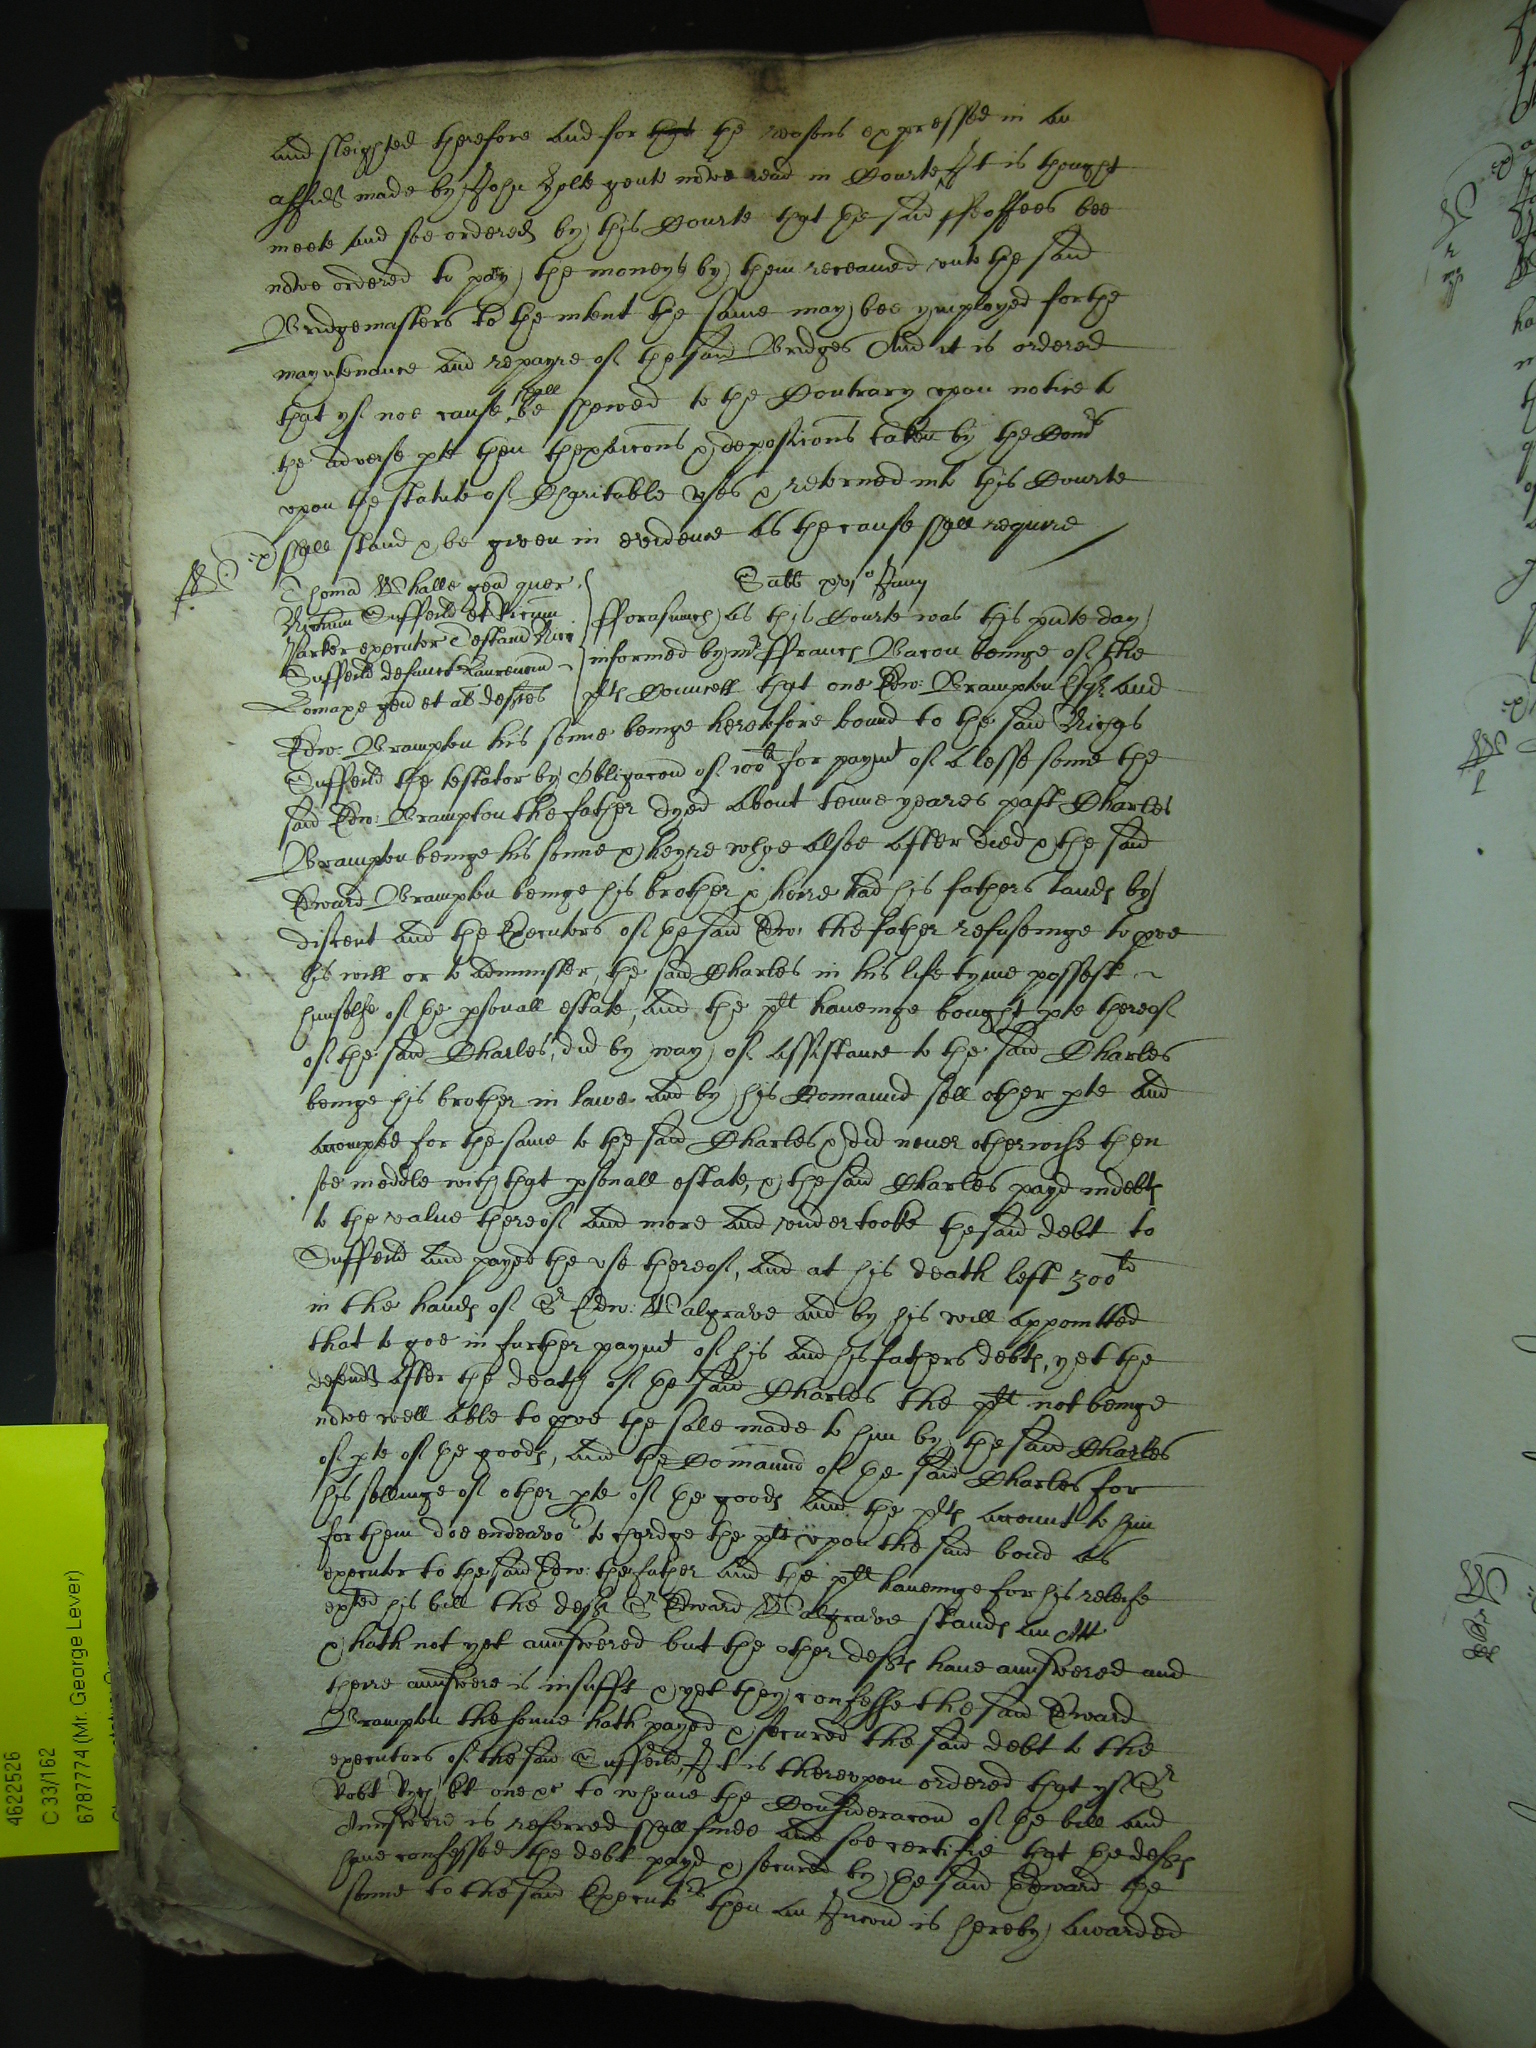 and sleighted therefore and for that the reasons expressed in an
affid made by John gent nowe read in Courte, It is thought
meete and soe ordered by this Courte that the said ffeoffees bee
nowe ordered to pay the moneys by them receaued vnto the said
Bridgemasters to the intent the same may bee ymployed for the
mayntenance and repayre of the said Bridges And it is ordered
that yf noe cause shall be shewed to the Contrary vpon notice to
the adverse pte then & deposicons taken by the Comrs
vpon the statute of Charitable Vses & retorned into this Courte
shall stand & be given in evidence as the cause shall require
Sabb xvjo Juny
Thomas Whalle gen quer
Suffeild et
Parker executor Testam Rici
Suffeild defunct Laurencium
Lomaxe gen et al deftes
fforasmuch as this Courte was this pnte day
informed by mr ffrancis Bacon beinge of the
plts Councell that one Edw: Brampton Esqr and
Edw: Brampton his sonne beinge heretofore bound to the said Richard
Suffeild the testator by Obligacon of 100li for paymt of a lesse some the
said Edw: Brampton the father dyed about tenne yeares past Charles
Brampton beinge his sonne & heyre whoe alsoe after died & the said
Edward Brampton beinge his brother & heire had his fathers lands by
discent and the Executors of the said Edw: the father refuseinge to pve
his will or to administer, the said Charles in his life tyme possest
himselfe of the psonall estate, and the plt haueinge bought pte thereof
of the said Charles, did by way of assistance to the said Charles
beinge his brother in lawe and by his Comaund sell other pte and
accompted for the same to the said Charles & did neuer otherwise then
soe meddle with that psonall estate, & the said Charles payd in debts
to the value thereof and more and vndertooke the said debt to
Suffeild and payed the vse thereof, and at his death left 300li
in the hands of Sr Edw: Walgrave and by his will appointed
that to goe in further paymt of his and his fathers debts, yet the
defendts after the death of the said Charles the plt not beinge
nowe well able to pve the sale made to him by the said Charles
of pte of the goods, and the Comaund of the said Charles for
his sellinge of other pte of the goods and the plts account to him
for them doe endeavor to chardge the plt vpon the said bond as
executor to the said Edw: the father and the plt haueinge for his releife
exhited his bill the deft Sr Edward Walgrave stands an Att
& hath not yet aunswered but the other defts haue aunswered and
theire aunswere is insufft & yet they confesse the said Edward
Brampton the sonne hath payed & secured the said debt to the
executors of the said Suffeild, It is therevpon ordered that yf Sr
Robt Rich kt one &c to whome the Consideracon of the bill and
Aunswere is referred shall finde and soe certifie that the defts
haue confessed the debt payd & secured by the said Edward the
sonne to the said Executrs then an Iniucon is hereby awarded
4622526
C 33/162
6787774 (Mr. George Lever)